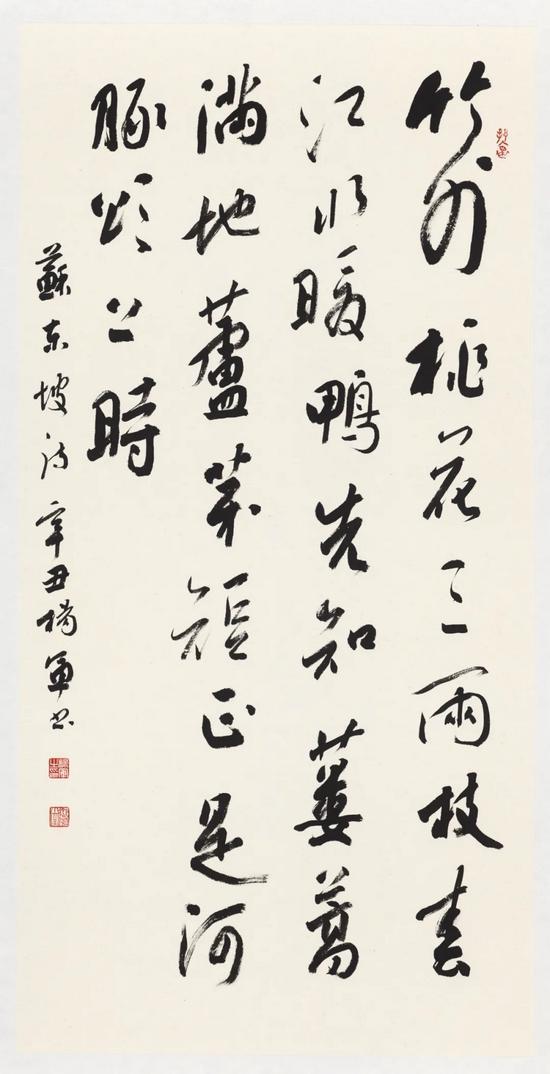 竹外桃花三兩枝春
江水暖鴨先知蔞蒿
滿地蘆芽短正是河
豚欲上時
蘇東坡詩辛丑楊軍書